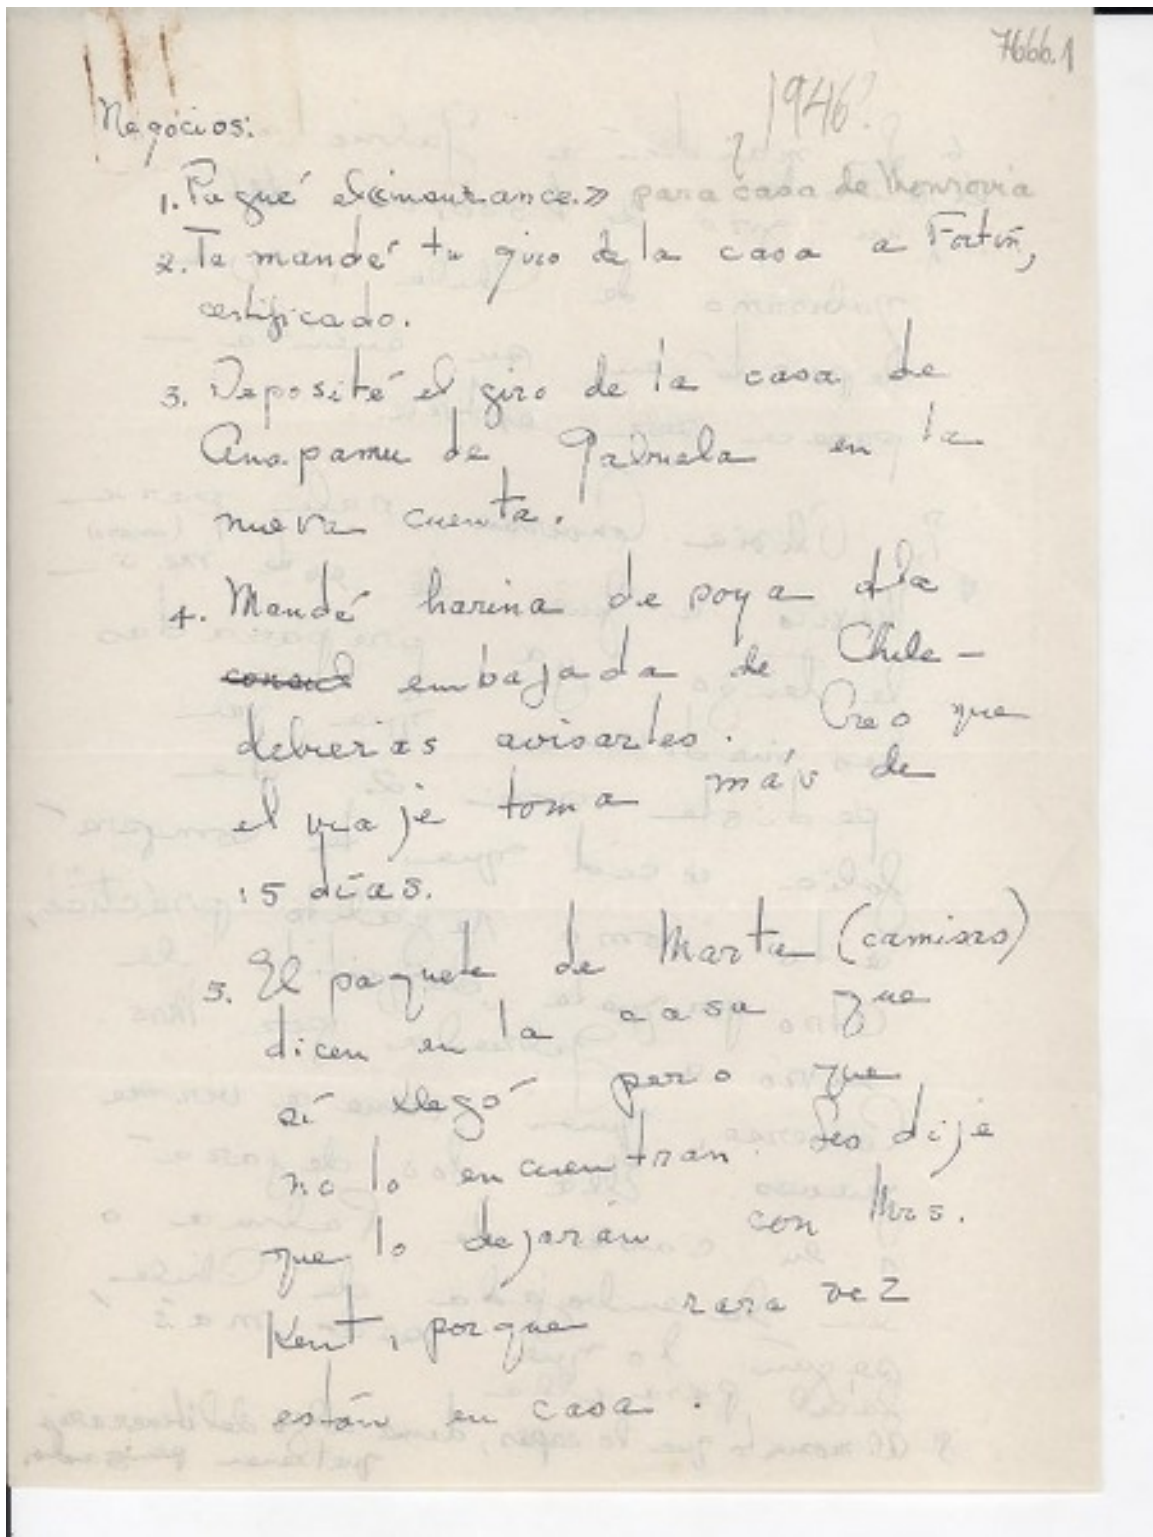 7666.1
¿1946?
Negócios:
1. Pagué el «insurance.» para casa de Monrovia
2. Te mandé tu giro de la casa a Fortín,
certificado.
3. Deposité el giro de la casa de
Anapamu de Gabriela en la
nueva cuenta.
4. Mandé harina de soya a la
embajada de Chile -
debierias avisarles. Creo que
el viaje toma más de
15 días.
5. El paquete de Marta (camisas)
dicen en la casa que
sí llegó pero que
no lo encuentran. Les dije
que lo dejarán con Mrs.
Kent, porque rara vez
están en casa.